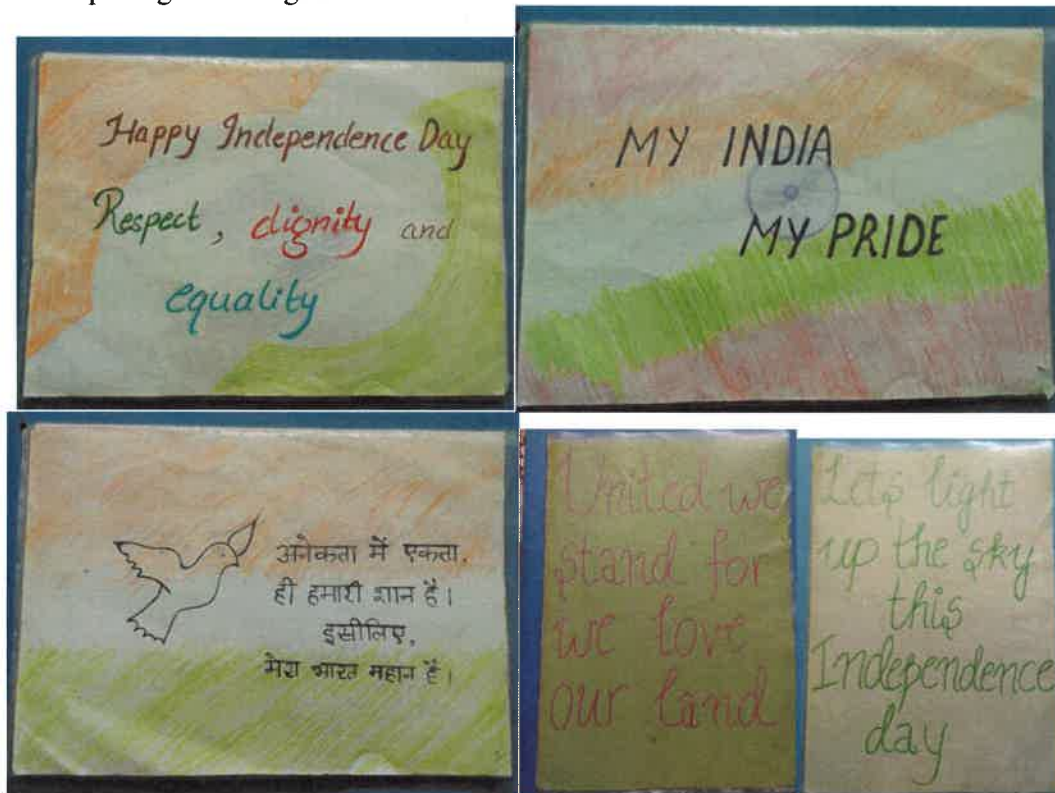 Happy Independence Day
Respect, dignity and
equality
MY INDIA
MY PRIDE
अनेकता में एकता,
ही हमारी शान है।
इसीलिए,
मेरा भारत महान है।
United we
stand for
we love
our land
Lets light
up the sky
this
Independence
day